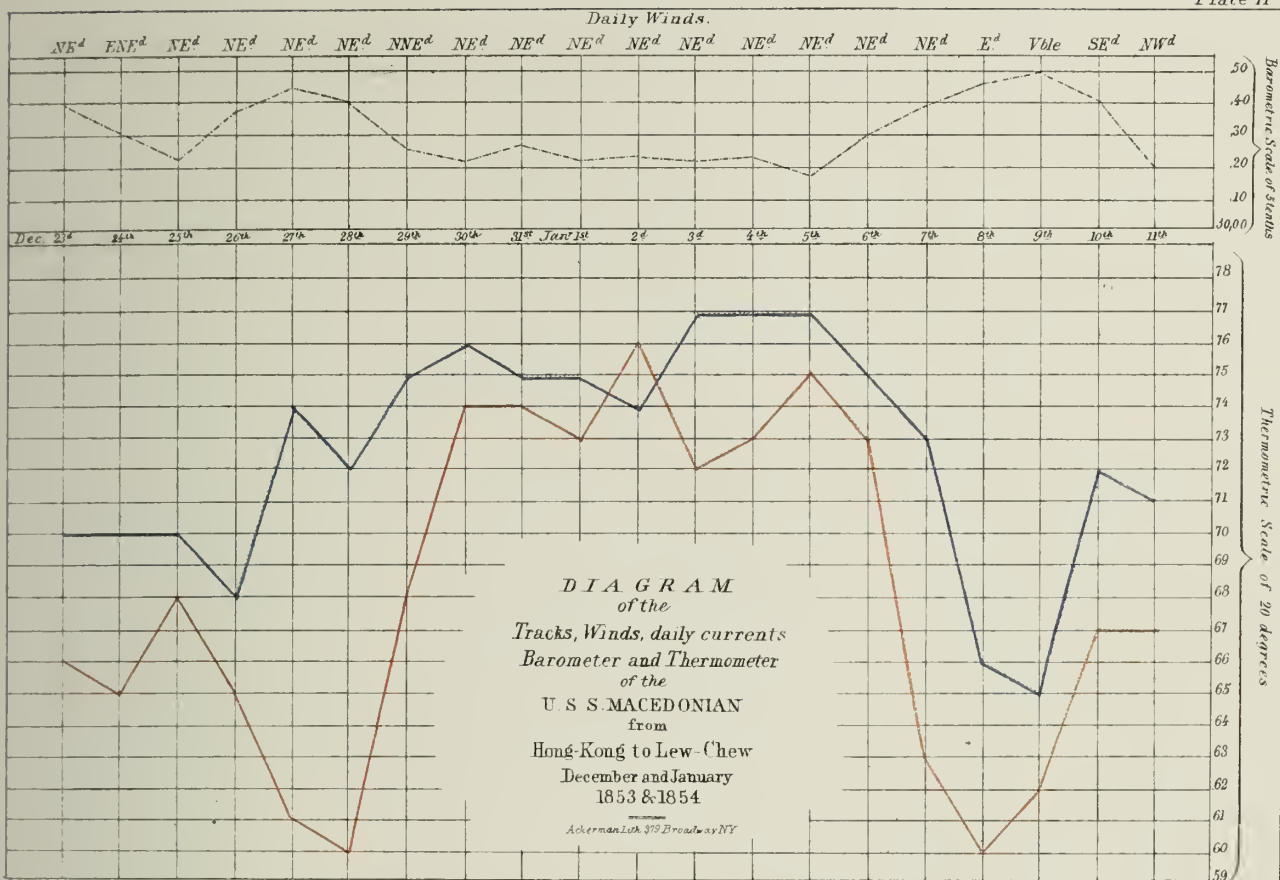 Plate II
Daily Winds.
NEd ENEd NEd NEd NEd NEd NNEd NEd NEd NEd NEd NEd NEd NEd NEd NEd Ed Vble SEd NWd
50
40
30
20
10
30,00
Barometric Scale of 5 tenths
Dec. 23d 24th 25th 26th 27th 28th 29th 30th 31st Jany 1st 2d 3d 4th 5th 6th 7th 8th 9th 10th 11th
78
77
76
75
74
73
72
71
70
69
68
67
66
65
64
63
62
61
60
59
Thermometric Scale of 20 degrees
DIAGRAM
of the
Tracks, Winds, daily currents
Barometer and Thermometer
of the
U.S S.MACEDONIAN
from
Hong-Kong to Lew-Chew
December and January
1853 & 1854
Ackerman Lith 379 Broadway NY